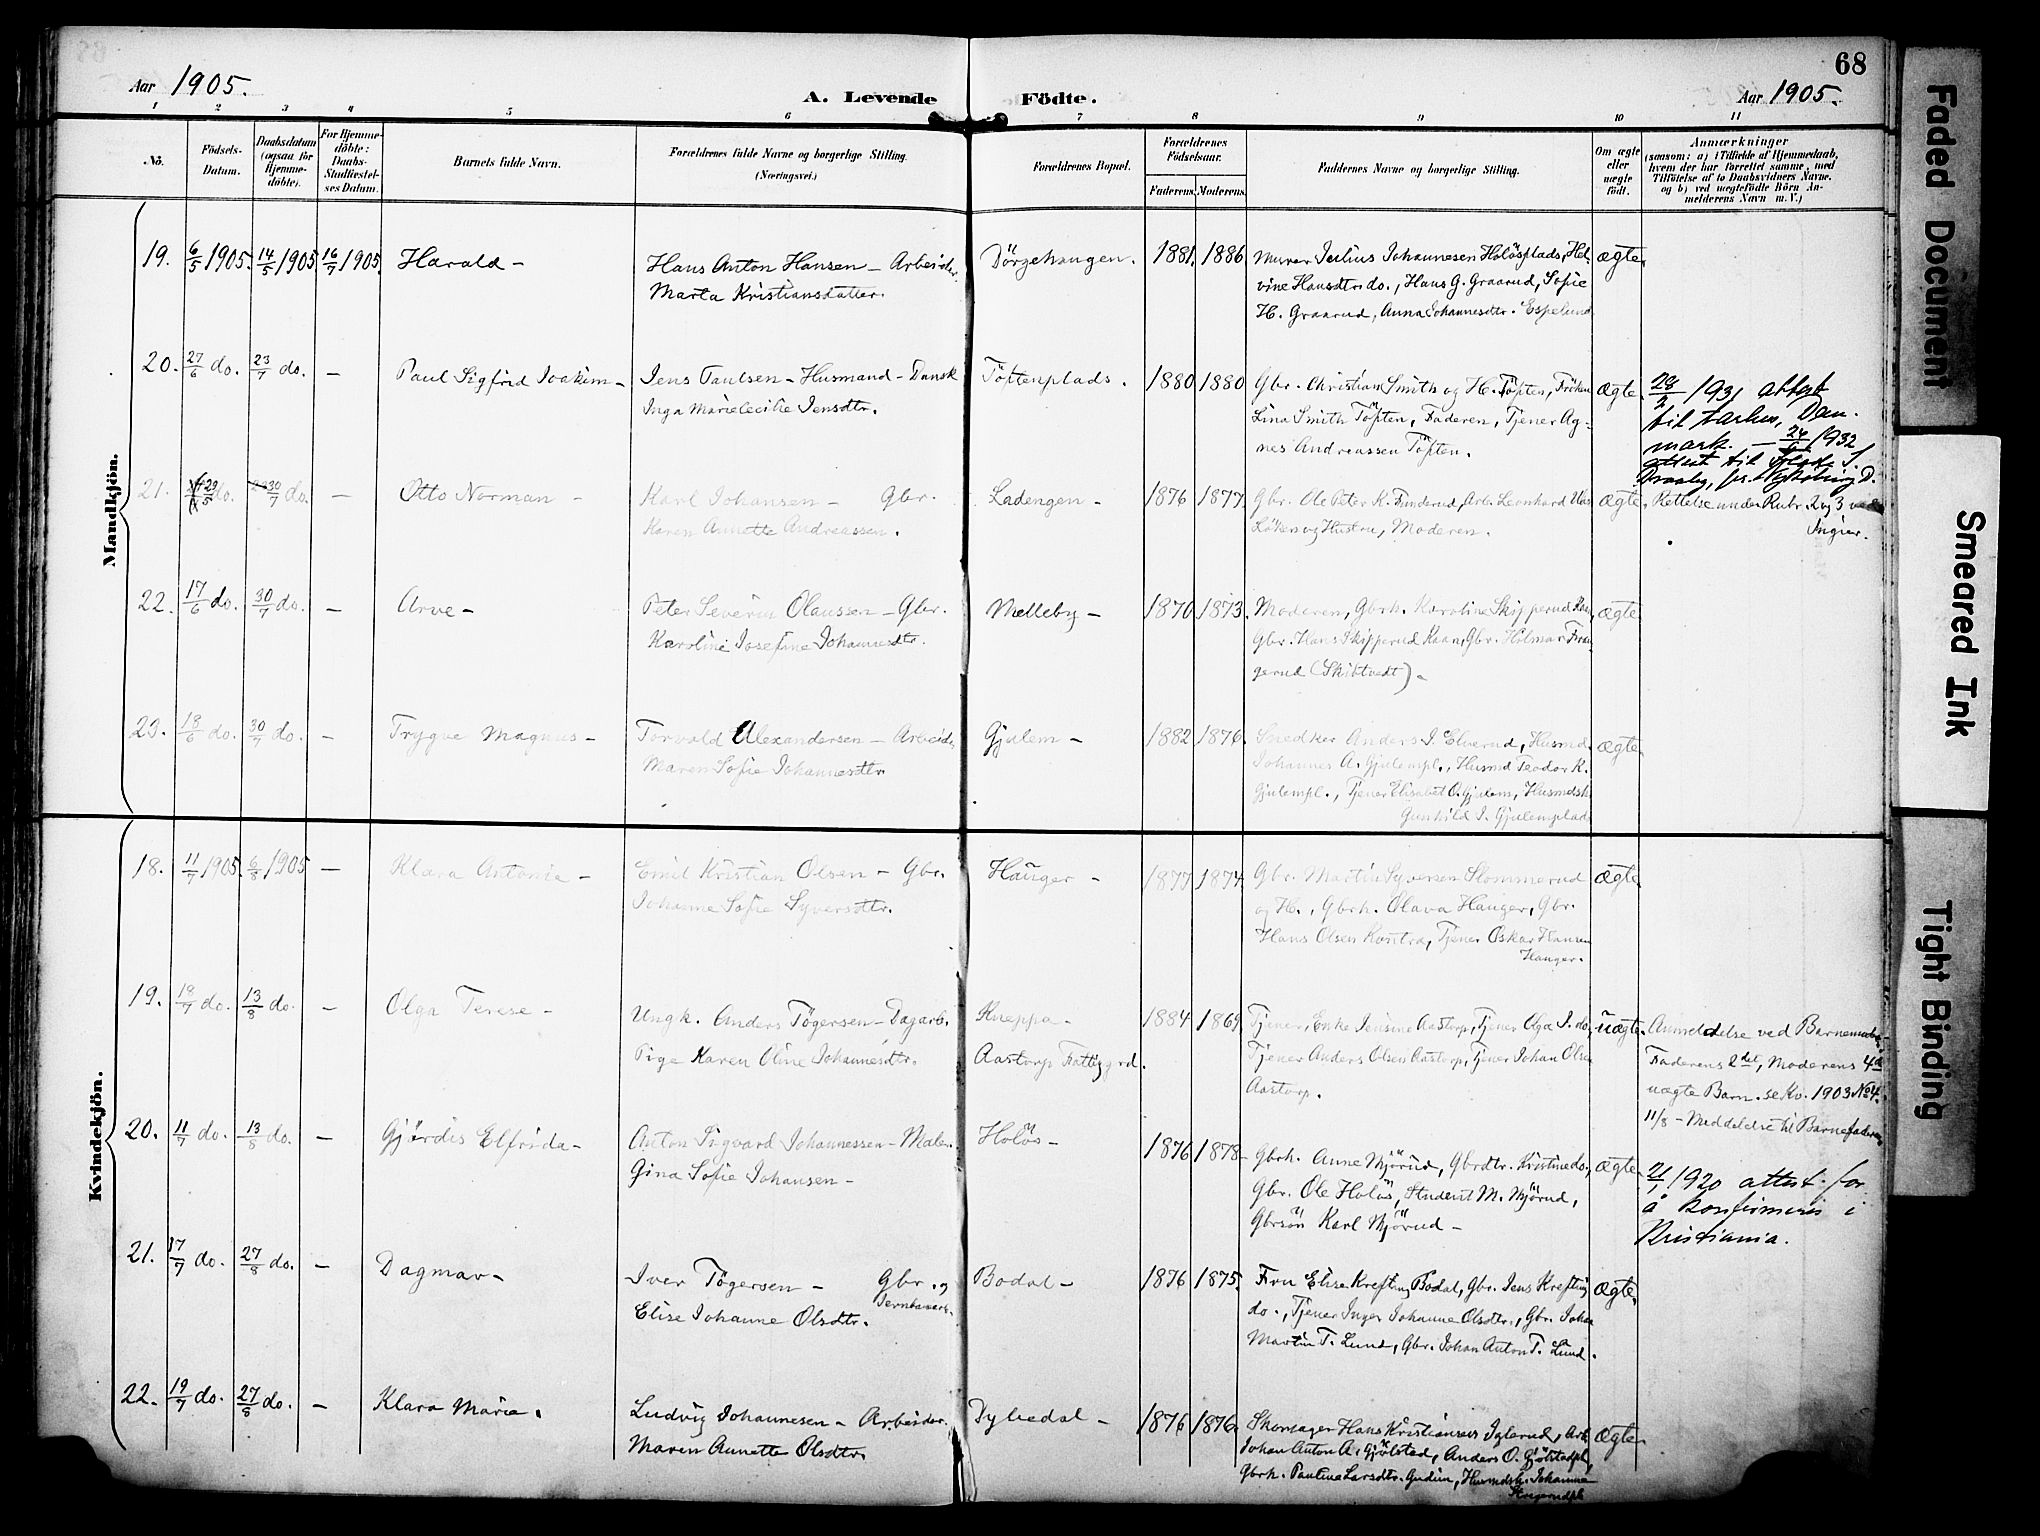 68
Aar 1905.
A. Levende Födte.
Aar 1905.
1 2 3 4 5 6 7 8 9 10 11
No.
Födsels-Datum.
Daabsdatum (ogsaa for Hjemme-döbte).
For Hjemme-döbte: Daabs-Stadfæstel-ses Datum.
Barnets fulde Navn.
Forældrenes fulde Navne og borgerlige Stilling.
(Næringsvei.)
Forældrenes Bopæl.
Forældrenes Födselsaar.
Faderens. Moderens.
Faddernes Navne og borgerlige Stilling.
Om ægte eller uægte födt.
Anmærkninger
(saasom: a) i Tilfælde af Hjemmedaab,
hvem der har forrettet samme, med
Tilföielse af to Daabsvidners Navne,
og b) ved uægtefödte Börn An-
melderens Navn m. V.)
Mandkjön.
19. 6/5 1905. 14/5 1905 16/7 1905. Harald - Hans Anton Hansen - Arbeider Dörgehaugen. 1881. 1886 Murer Julius Johannesen Holösplads, Hel- ægte.
Marta Kristiansdatter. vine Hansdtr. do., Hans G. Graarud, Sofie
H. Graarud, Anna Johannesdtr. Espelund
20. 27/6 do. 23/7 do. - Paul Sigfrid Joakim - Jens Paulsen - Husmand - Dansk Töftenplads. 1880 1880 Gbr. Christian Smith og H. Töften, Fröken ægte. 28/2 1931 attest
Inga Marie Cecilie Jensdtr. Lina Smith Töften, Faderen, Tjener Ag- til Aarhus, Dan-
nes Andreassen Töften. mark. - 1932
attest til
21. do. 30/7 do. - Otto Norman - Karl Johansen - Gbr. Ladengen - 1876 1877. Gbr. Ole Peter K. Funderud, Arb. Lernhard ægte. Rettelse under Rubr. 2 og 3 ved
Karen Annette Andreassen. Löken og Hustru, Moderen. Ingier.
22. 17/6 do. 30/7 do. - Arve - Peter Severin Olaussen - Gbr. Melleby - 1870 1873. Moderen, Gbrk. Karoline Skipperud Kaan, ægte.
Karoline Josefine Johannesdtr. Gbr. Hans Skipperud Kaan, Gbr. Hilmar Fran-
gerud (Skibtvedt).
23. 18/6 do. 30/7 do. - Trygve Magnus - Torvald Alexandersen - Arbeider Gjulem - 1882 1876. Snedker Anders J. Elverud, Husmd. ægte.
Maren Sofie Johannesdtr. Johannes A. Gjulempl., Husmd Teodor K.
Gjulempl., Tjener Elisabet O. Gjulem, Husmdsk.
Gunhild J. Gjulemplads
Kvindekjön.
18. 11/7 1905. 6/8 1905 - Klara Antonie - Emil Kristian Olsen - Gbr. Hauger - 1877 1874. Gbr. Martin Syversen Slommerud ægte.
Johanne Sofie Syversdtr. og H., Gbrk. Olava Hauger, Gbr.
Hans Olsen Kontra, Tjener Oskar Hansen
Hauger.
19. 18/7 do. 13/8 do. - Olga Terese - Ungk. Anders Tögersen - Dagarb. Kneppa - 1884 1869. Tjener, Enke Jensine Aastorp, Tjener Olga J. do., uægte. Anmeldelse ved Barnemoder.
Pige Karen Oline Johannesdtr. Aastorp Fattiggrd. Tjener Anders Olsen Aastorp, Tjener Johan Olsen Faderens 2det, Moderens 4de
Aastorp. uægte Barn. se Kv. 1903 No 4.
11/8 - Meddelelse til Barnefaderen
20. 11/7 do. 13/8 do. - Gjördis Elfrida - Anton Sigvard Johannessen - Maler Holös - 1876 1878 - Gbrk. Anne Mjörud, Gbrdtr. Kristine do., ægte. 21/1 1920 attest for
Gina Sofie Johansen - Gbr. Ole Holös, Student M. Mjörud, å konfirmeres i
Gbrsön Karl Mjörud - Kristiania.
21. 17/7 do. 27/8 do. - Dagmar - Iver Tögersen - Gbr. og Bodal - 1876 1875. Fru Elise Krefting Bodal, Gbr. Jens Krefting ægte.
Elise Johanne Olsdtr. do., Tjener Inger Johanne Olsdtr., Gbr. Johan
Martin T. Lund, Gbr. Johan Anton T. Lund.
22. 19/7 do. 27/8 do. - Klara Marie. Ludvig Johannesen - Arbeider. Dybedal - 1876 1876. Skomager Hans Kristiansen Iglerud, Arb. ægte.
Maren Annette Olsdtr. Johan Anton A. Gjölstad, Anders O. Gjölstadpl.,
Gbrk. Pauline Larsdtr. Gudim, Husmdsk. Johanne
Faded Document
Smeared Ink
Tight Binding